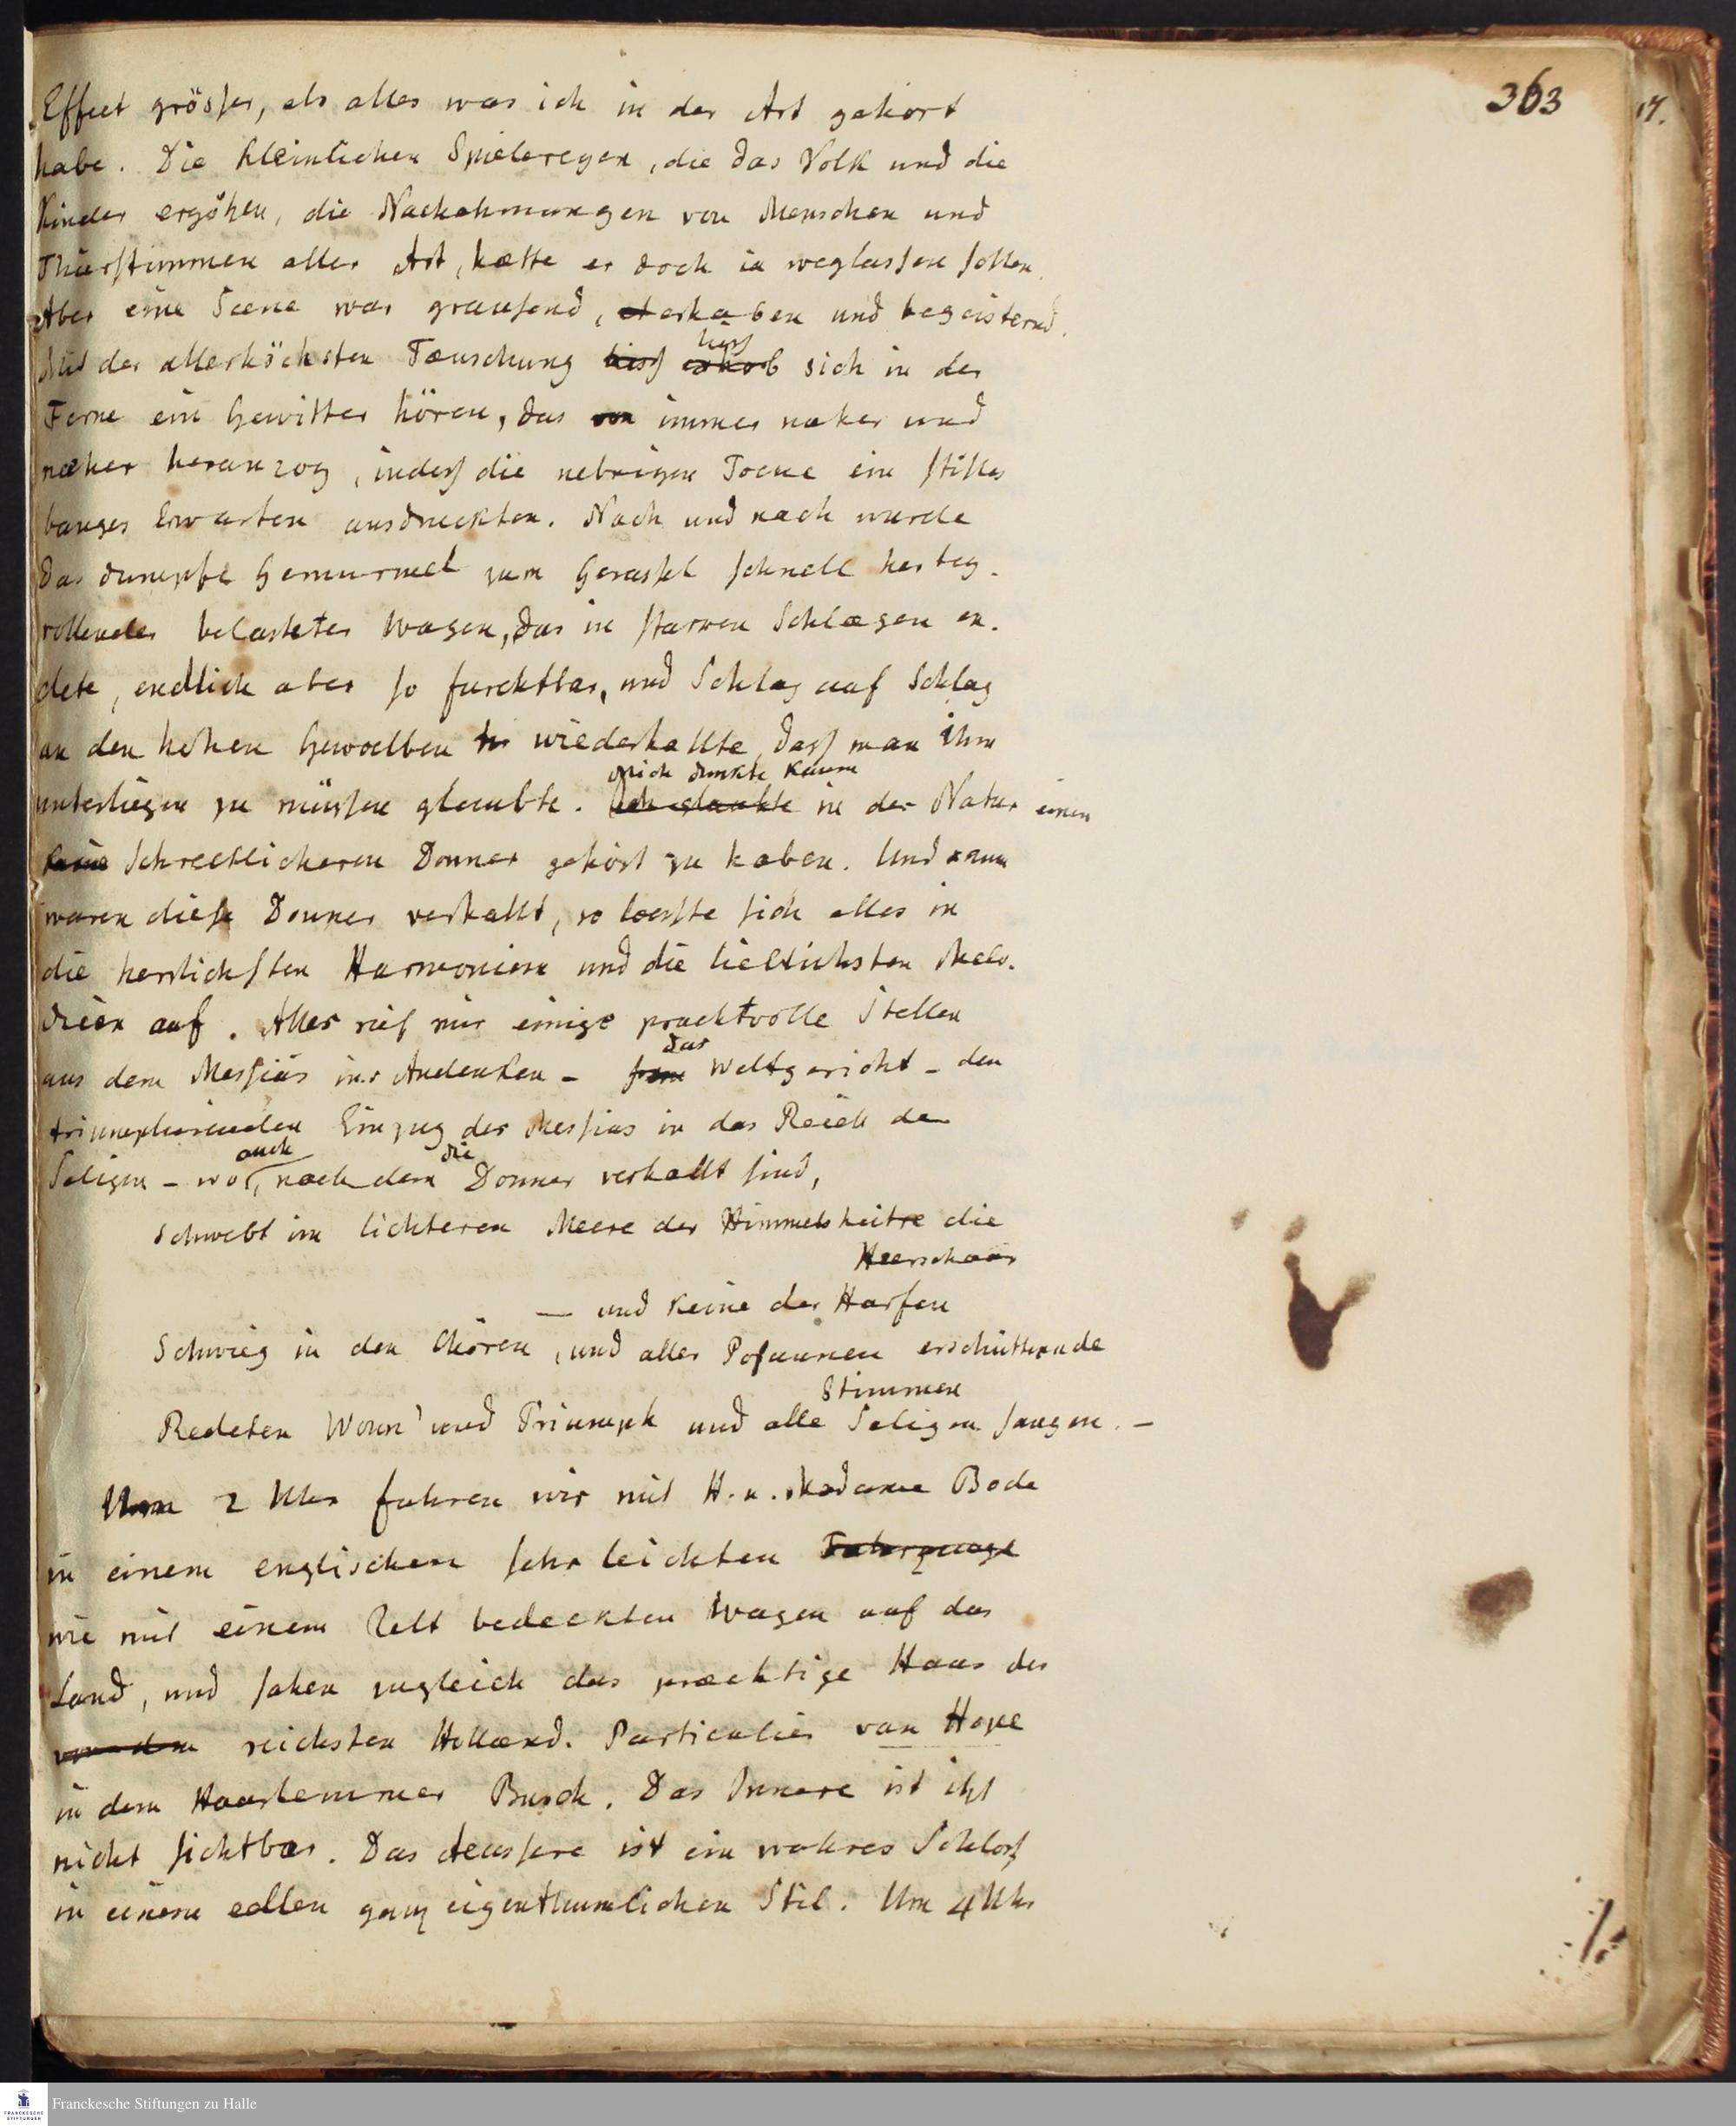 363
17.
Effect grösser, als alles was ich in der Art gehört
habe. Die kleinlichen Spielereyen, die das Volk und die
Kinder ergötzen, die Nachahmungen von Menschen und
Thierstimmen aller Art, hætte er doch ia weglassen sollen.
Aber eine Scene war grausend, erhaben und begeisternd.
Mit der allerhöchsten Tæuschung liess erhob liess sich in der
Ferne ein Gewitter hören, das von immer næher und
næher heranzog, indess die uebrigen Toene ein stilles
banges Erwarten ausdruckten. Nach und nach wurde
das dumpfe Gemurmel zum Gerassel schnell hertey-
rollender belasteter Wagen, das in starken Schlægen en-
dete, endlich aber so furchtbar, und Schlag auf Schlag
an den hohen Gewoelben wiederhallte, dass man ihm
mich dünkte kaum
unterliegen zu müssen glaubte. Ich glaubte in der Natur einen
keine schrecklicheren Donner gehört zu haben. Und kaum
waren diese Donner verhallt, so loesste sich alles in
die herrlichsten Harmonien und die lieblichsten Melo-
dieen auf. Alles rief mir einige prachtvolle Stellen
das
aus dem Messias ins Andenken - Weltgericht - den
triumphirenden Einzug des Messias in das Reich der
auch die
Seligen - wo, nachdem Donner verhallt sind,
schwebt im lichteren Meere der Himmelsheitre die
Heerschaar
— und keine der Harfen
Schwieg in den Chören, und aller Posaunen erschütternde
Stimmen
Redeten Wonn' und Triumph und alle Seligen sangen. -
Um 2 Uhr fuhren wir mit H. u. Madame Bode
in einem englischen sehr leichten Fahrzeuge
wie mit einem Zelt bedeckten Wagen auf das
Land, und sahen zugleich das præchtige Haus des
von dem reichsten Hollænd. Particulier van Hope
in dem Haarlemmer Busch. Das Innere ist itzt
nicht sichtbar. Das Aeussere ist ein wahres Schloss
in einem edlen ganz eigenthumlichen Stil. Um 4 Uhr
Franckesche Stiftungen zu Halle